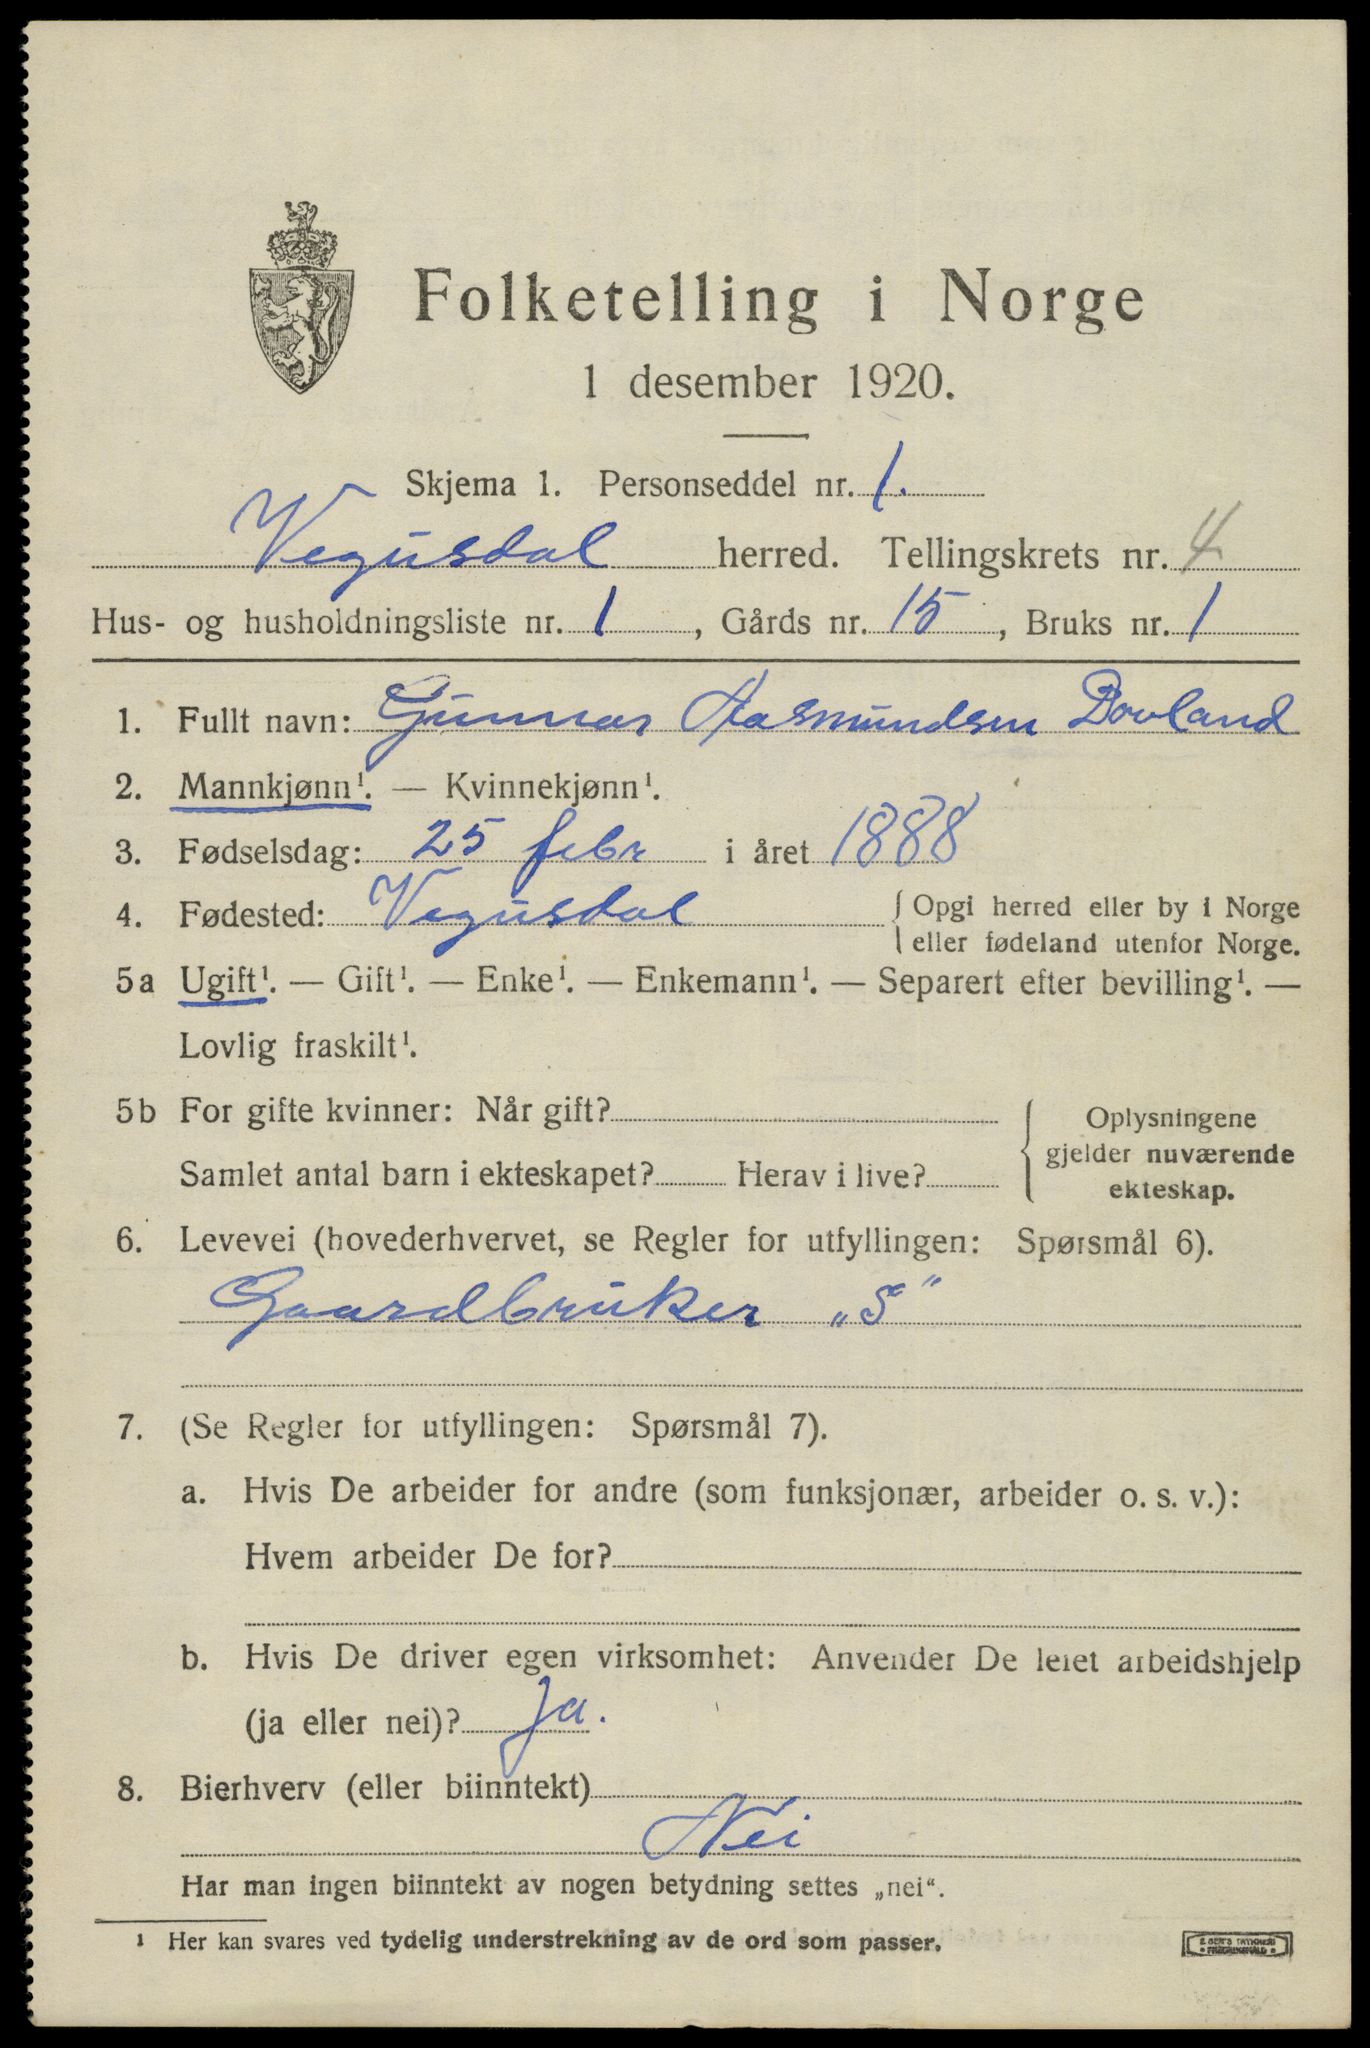 Folketelling i Norge
1 desember 1920.
Skjema 1. Personseddel nr. 1.
Vegusdal herred. Tellingskrets nr. 4
Hus- og husholdningsliste nr. 1, Gårds nr. 15, Bruks nr. 1
1. Fullt navn: Gunnar Aasmundsen Bovland
2. Mannkjønn¹. — Kvinnekjønn¹.
3. Fødselsdag: 25 febr i året 1888
4. Fødested: Vegusdal { Opgi herred eller by i Norge
eller fødeland utenfor Norge.
5a Ugift¹. — Gift¹. — Enke¹. — Enkemann¹. — Separert efter bevilling¹. —
Lovlig fraskilt¹.
5b For gifte kvinner: Når gift?
Samlet antal barn i ekteskapet? Herav i live?
{ Oplysningene
gjelder nuværende
ekteskap.
6. Levevei (hovederhvervet, se Regler for utfyllingen: Spørsmål 6).
Gaardbruker „S“
7. (Se Regler for utfyllingen: Spørsmål 7).
a. Hvis De arbeider for andre (som funksjonær, arbeider o. s. v.):
Hvem arbeider De for?
b. Hvis De driver egen virksomhet: Anvender De leiet arbeidshjelp
(ja eller nei)? Ja.
8. Bierhverv (eller biinntekt)
Nei
Har man ingen biinntekt av nogen betydning settes „nei“.
¹ Her kan svares ved tydelig understrekning av de ord som passer.